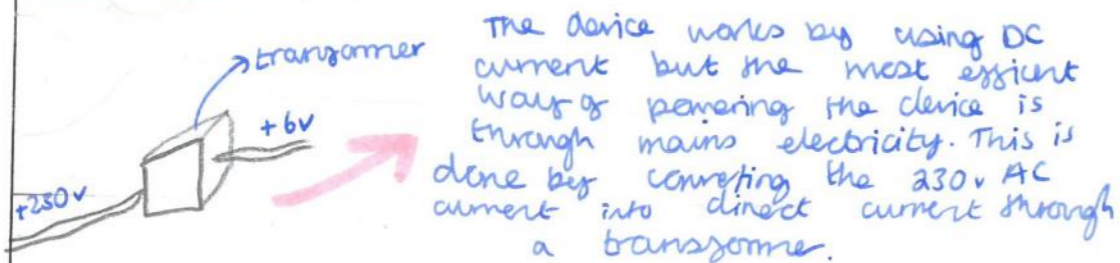 transormer
+6v
+230v
The device works by using DC
current but the most efficient
way of powering the device is
through mains electricity. This is
done by converting the 230v AC
current into direct current through
a transformer.